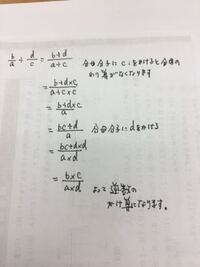 b/a ÷ d/c = b÷d/a÷c 分母分子に c をかけると分母の
わり算がなくなります
= b÷d×c/a÷c×c
= b÷d×c/a
= bc÷d/a 分母分子に d をかける
= bc÷d×d/a×d
= b×c/a×d よって 逆数の
かけ算になります。